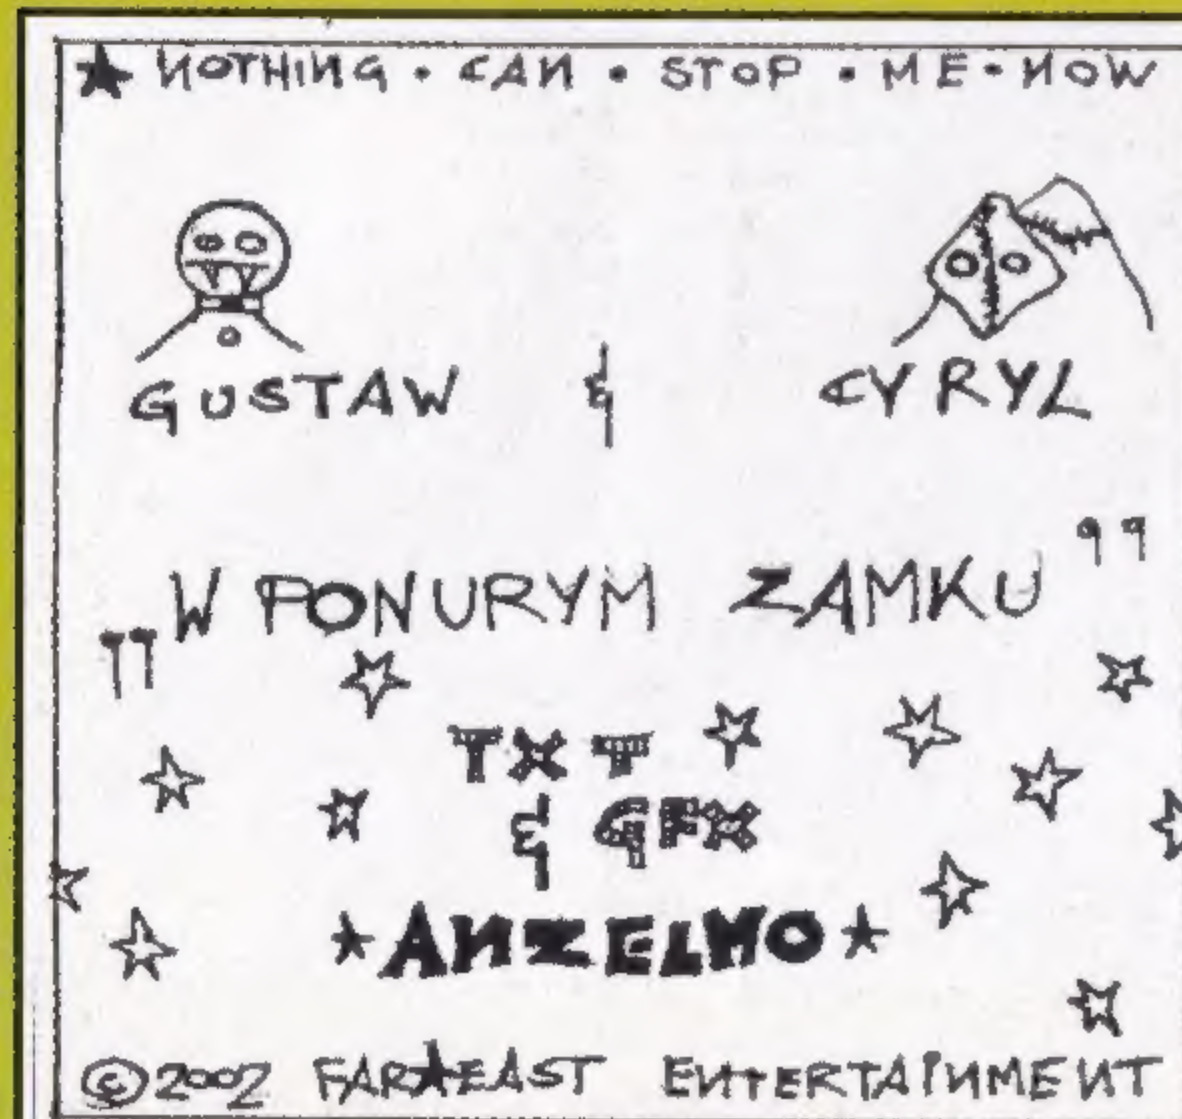 ★ NOTHING • CAN • STOP • ME • NOW
GUSTAW & CYRYL
"W PONURYM ZAMKU"
TXT
& GFX
★ ANZELMO ★
©2002 FAR★EAST ENTERTAINMENT